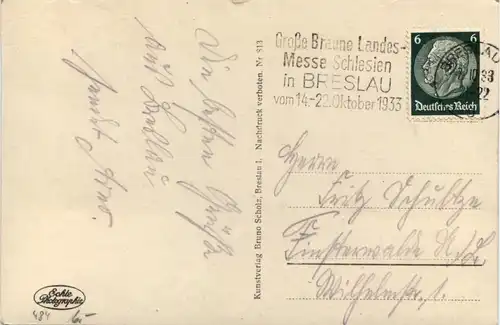 Die besten Grüße
aus Breslau
sendet
Kunstverlag Bruno Scholz, Breslau 1. Nachdruck verboten. Nr 913
Große Braune Landes-
Messe Schlesien
in BRESLAU
vom 14.-22. Oktober 1933
6 6
Deutsches Reich
BRESLAU
Herrn
Fritz Schultze
Finsterwalde N/L.
Wilhelmstr. 1.
Echte
Photographie
484